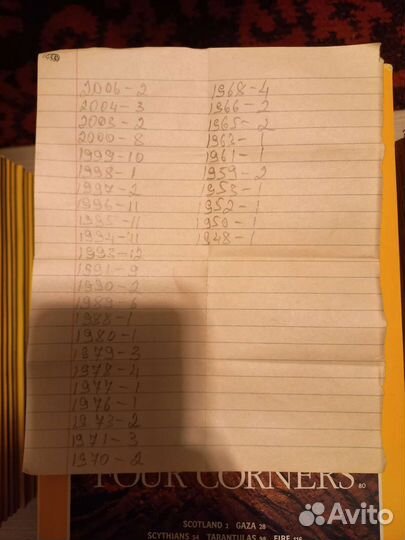 2006-2
2004-3
2003-2
2000-8
1999-10
1998-1
1997-2
1996-11
1995-11
1994-11
1993-12
1991-9
1990-2
1989-6
1988-1
1980-1
1979-3
1978-4
1977-1
1976-1
1973-2
1971-3
1970-2
1968-4
1966-2
1965-2
1963-1
1961-1
1959-2
1953-1
1952-1
1950-1
1948-1
FOUR CORNERS 80
SCOTLAND 2 GAZA 28
SCYTHIANS 54 TARANTULAS 98 FIRE 116
Avito